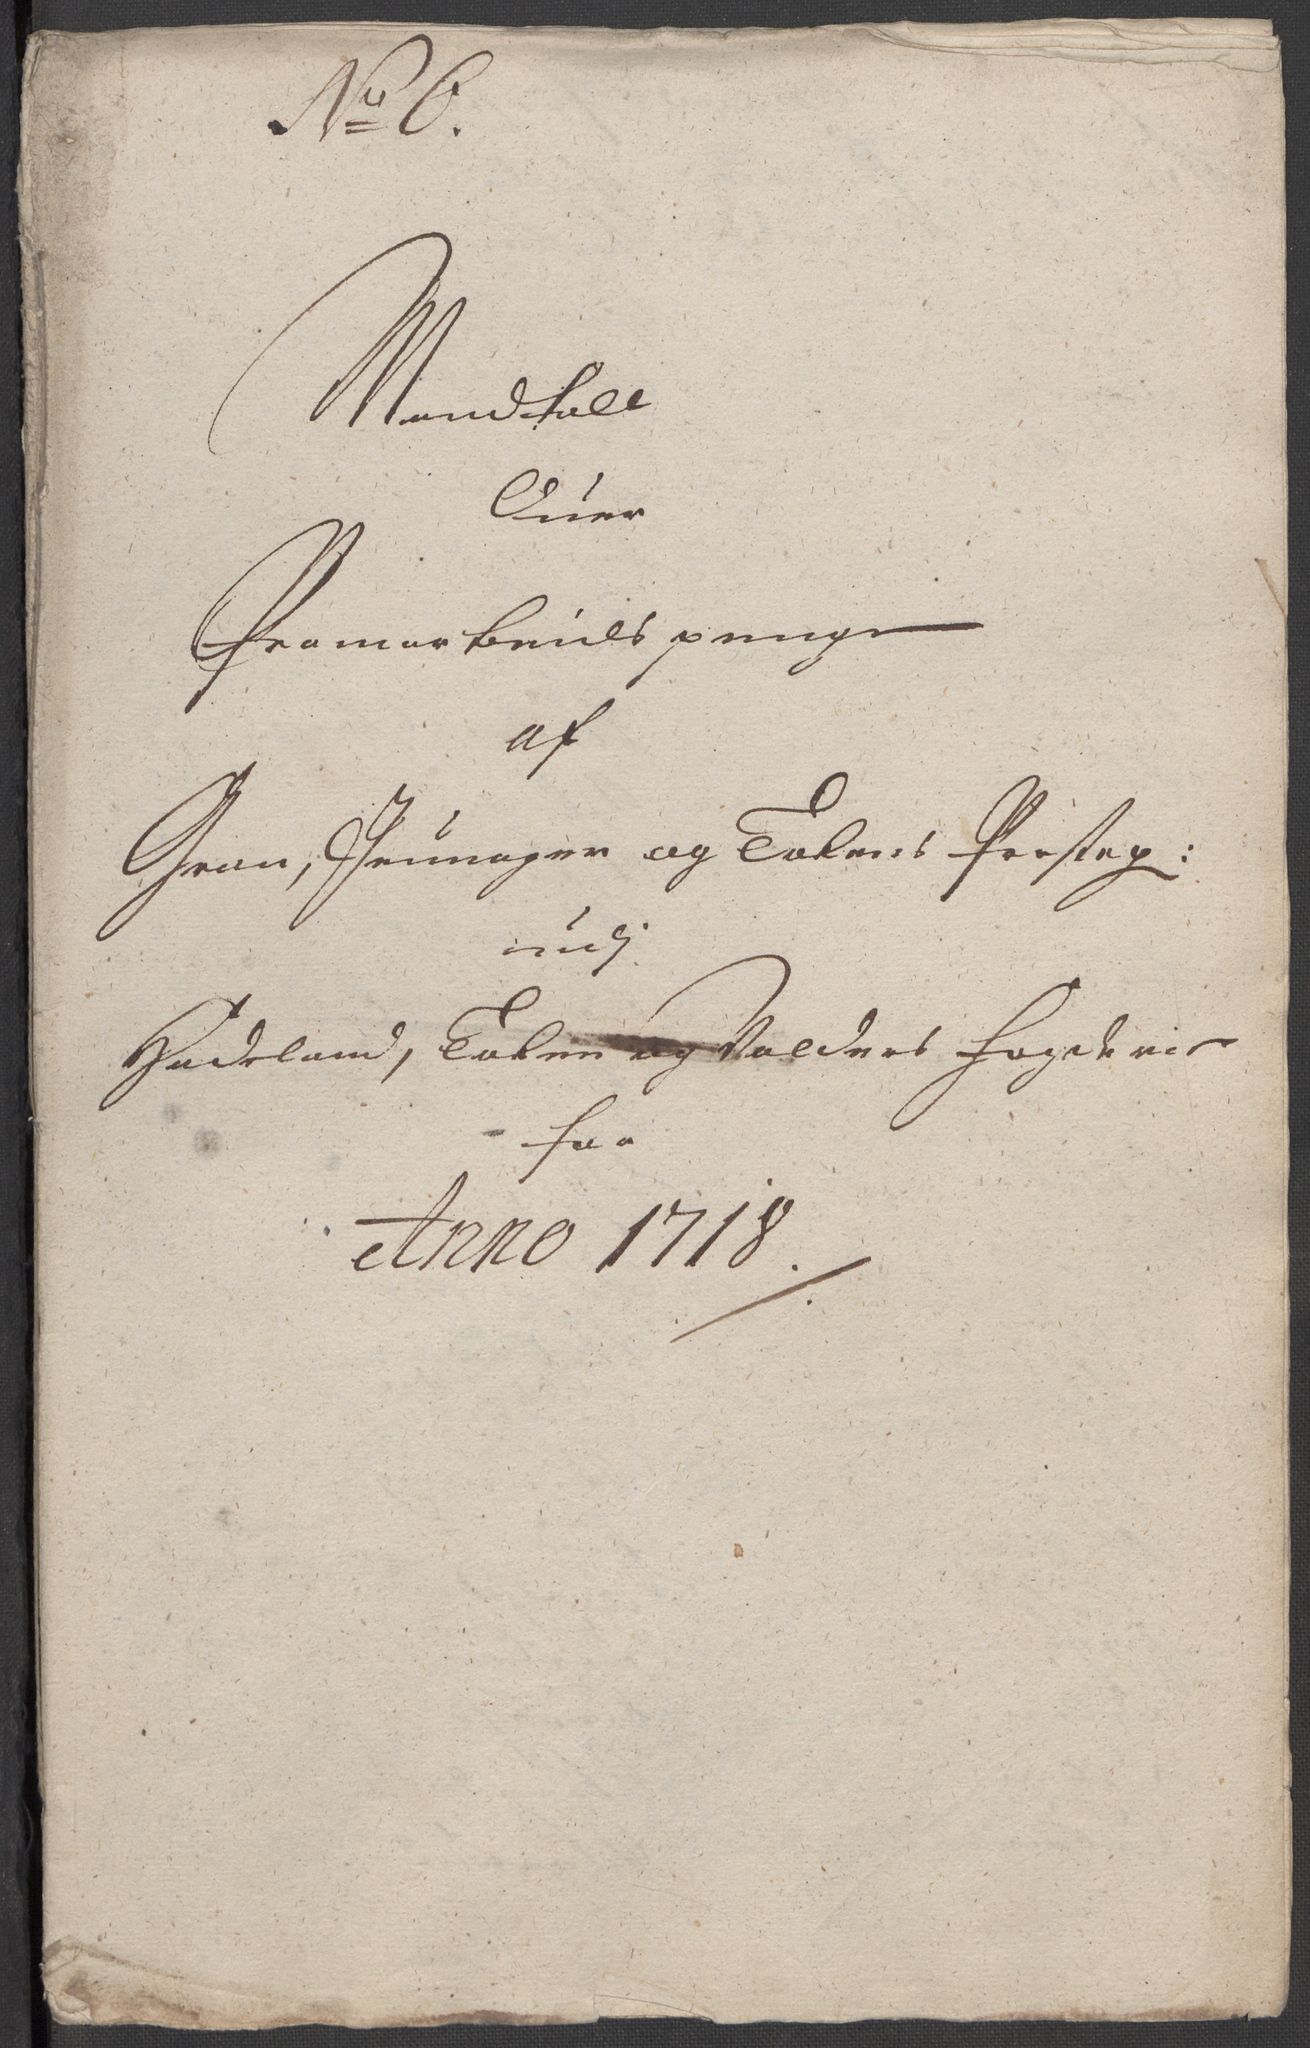 No 6.
Mandtall
Ofuer
Pramarbeids penge
af
Gran, Jeunager og Totens Præsteg:
udj
Hadeland, Toten og Valders fogderie
for
Anno 1718.